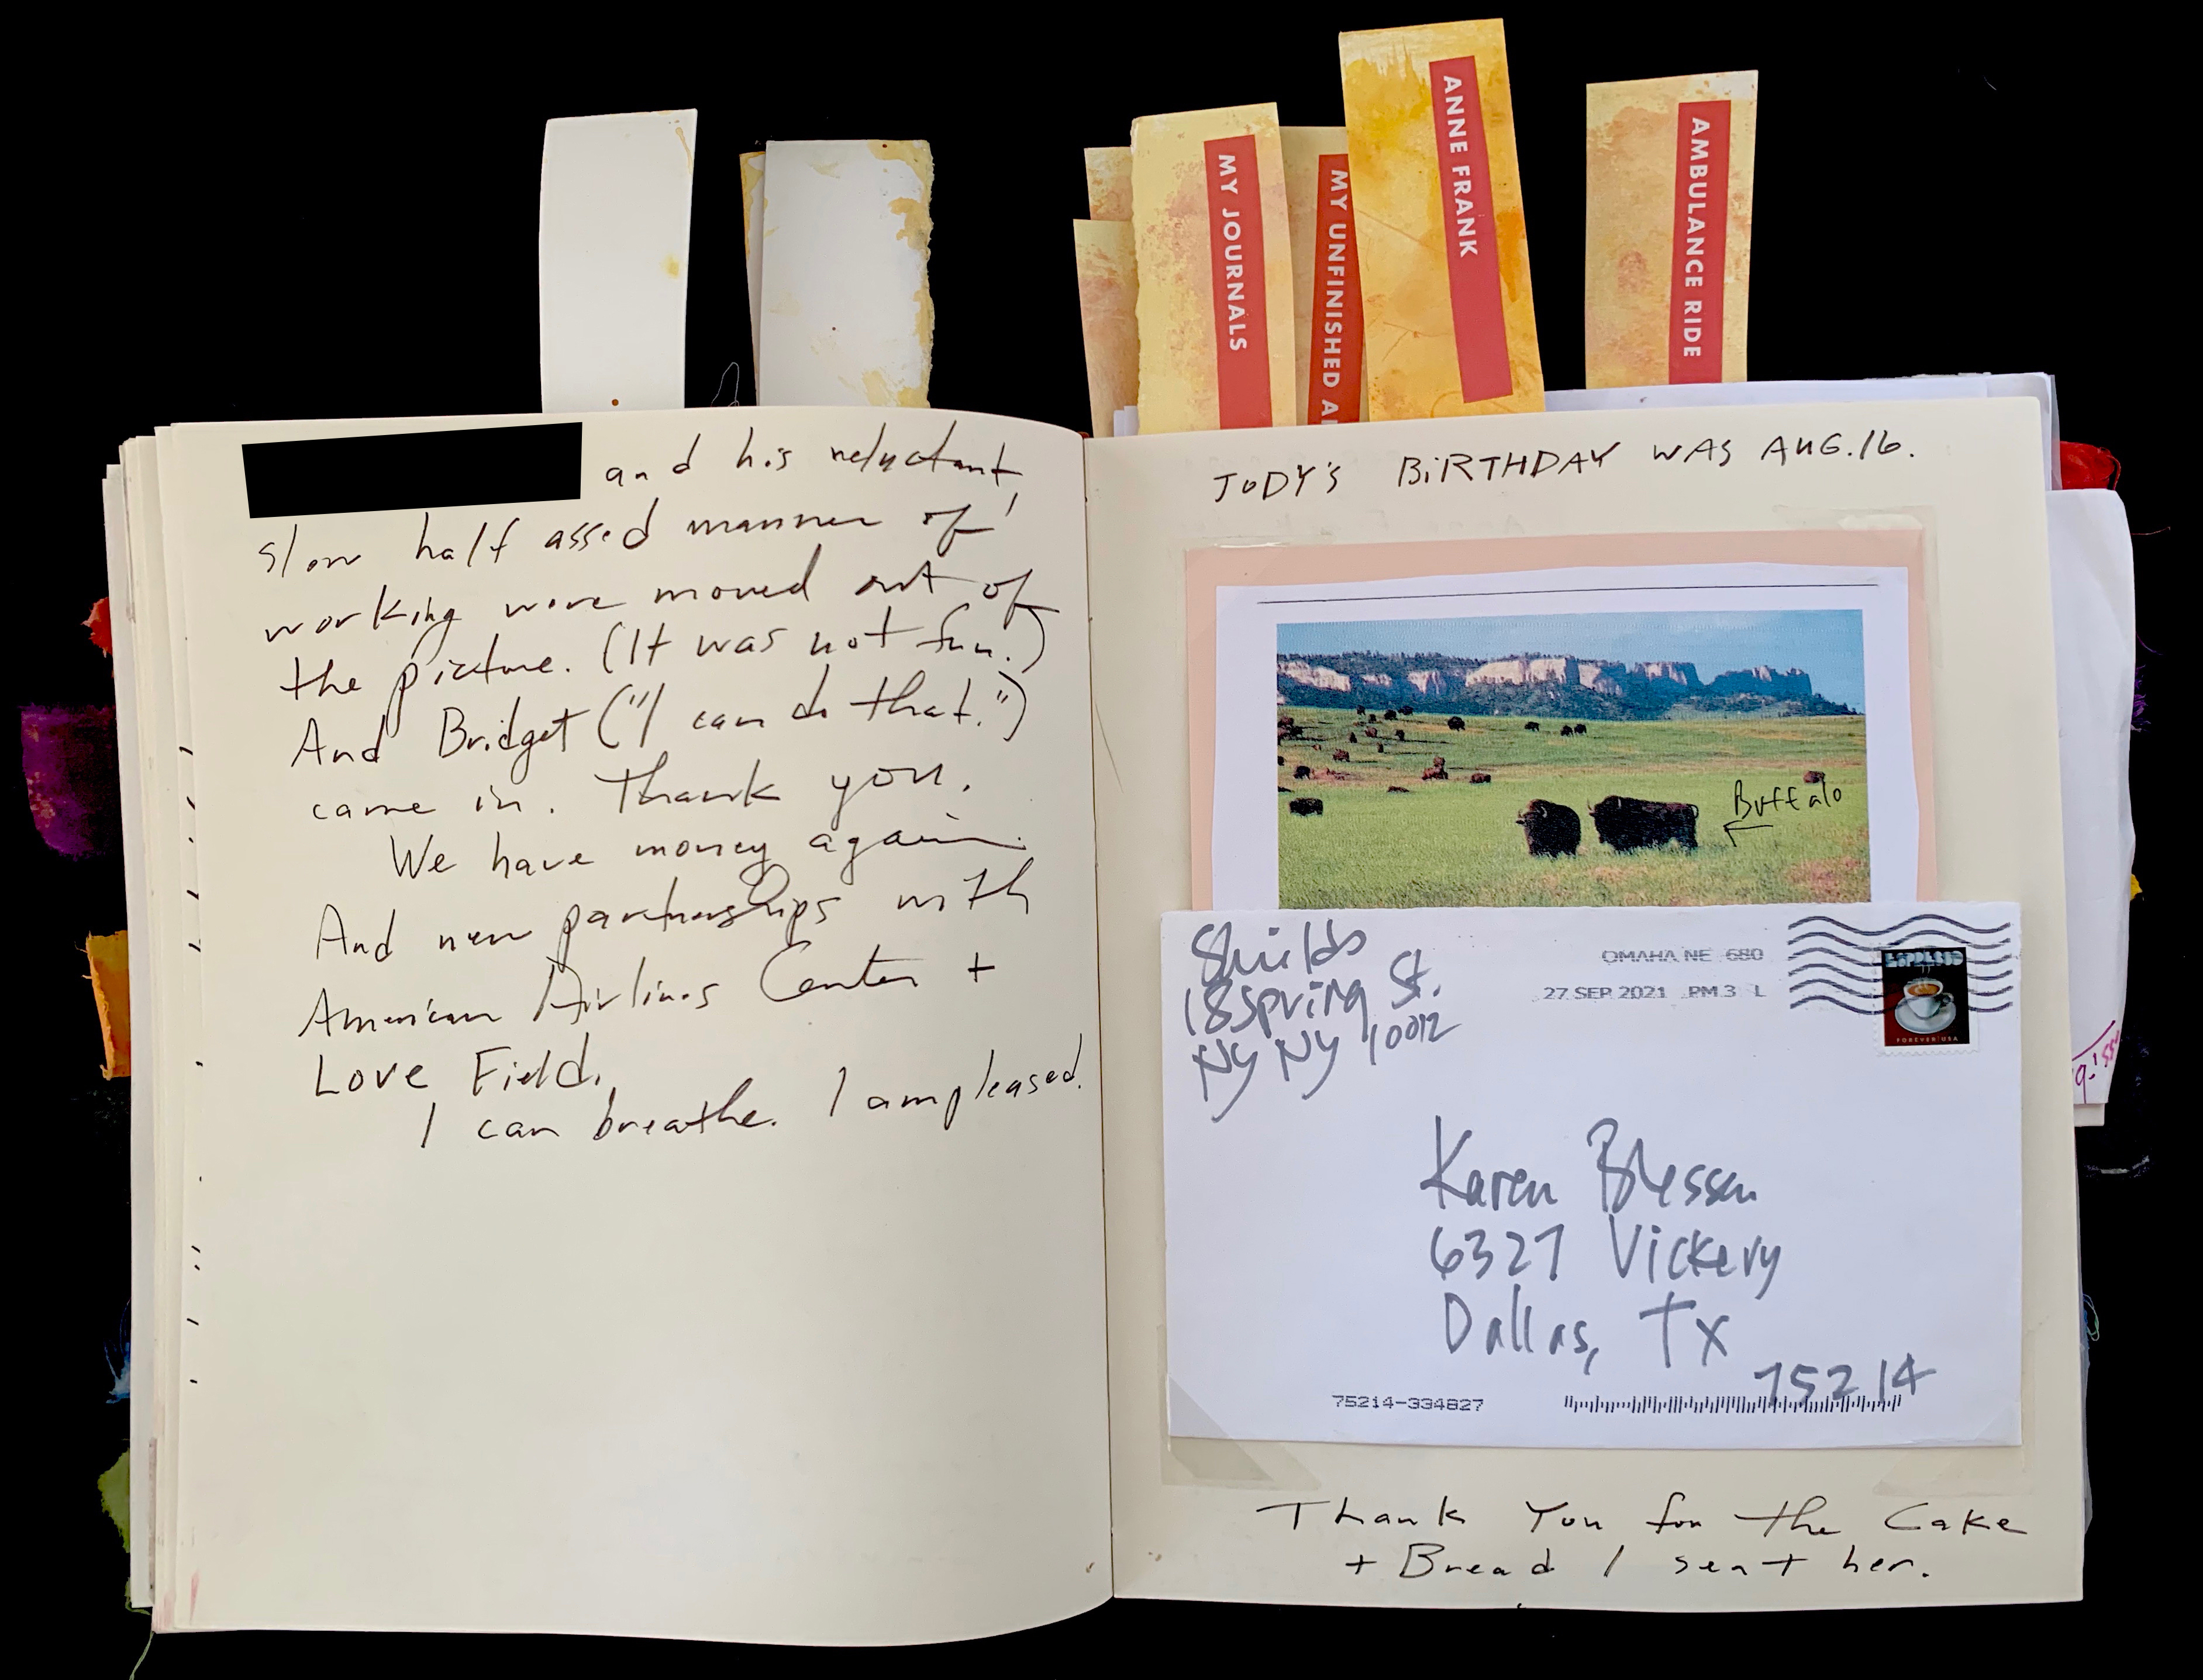 MY JOURNALS
MY UNFINISHED A
ANNE FRANK
AMBULANCE RIDE
and his reluctant,
slow half assed manner of
working were moved out of
the picture. (It was not fun.)
And Bridget ("I can do that.")
came in. Thank you.
We have money again.
And new partnerships with
American Airlines Center +
Love Field.
I can breathe. I am pleased.
JODY'S BIRTHDAY WAS AUG. 16.
Buffalo
Shields
18 Spring St.
NY NY 10012
OMAHA NE 680
27 SEP 2021 PM 3 L
ESPRESSO
FOREVER USA
Karen Blessen
6327 Vickery
Dallas, TX
75214
75214-334827
Thank You for the Cake
+ Bread I sent her.